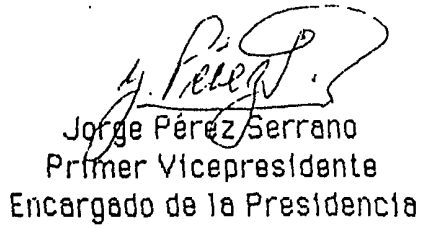 J. Pérez S.
Jorge Pérez Serrano
Primer Vicepresidente
Encargado de la Presidencia